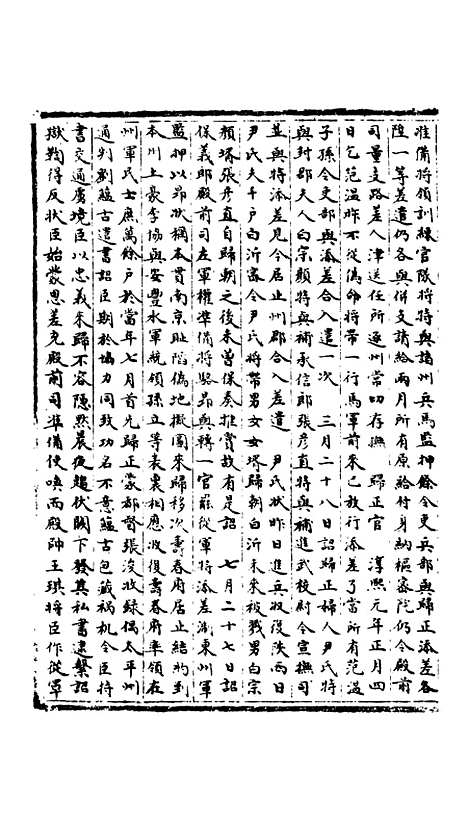 准備將領訓練官隊將特與諸州兵馬監押餘令吏兵部與歸正添差各
陞一等差遣仍各與併支請給兩月所有原給付身納樞密院仍令殿前
司量支路差人津送任所逐州當切存撫　歸正官　淳熙元年正月四
日乞范温昨不從偽命將帶一行馬軍前來已放行添差了當所有范温
子孫令吏部與添差合入差遣一次　三月二十八日詔歸正婦人尹氏特
與封郡夫人白宗顏特與補承信郎張彥直特與補進武校尉令宣撫司
並與特添差見令居止州郡合入差遣　尹氏狀昨日進兵收復陝西日
尹氏夫千戶白沂審令尹氏將帶男女女壻歸朝白沂未來被戮男白宗
顏壻張彥直自歸朝之後未曾保奏推賞故有是詔　七月二十七日詔
保義郎殿前司左軍權準備將騐昂與轉一官罷從軍特添差浙東州軍
監押以昂狀稱本貫南京陷偽地擬圖來歸移次壽春府居止結約到
本州土豪李協與安豐水軍統領孫立等表裏相應收復壽春府率領在
州軍民士庶萬餘戶於當年七月首先歸正蒙都督張浚收録偶太平州
通判劉蘊古遺書詔臣期於協力同致功名不意蘊古包藏禍机令臣持
書交通虜境臣以忠義來歸不容隱黙晨夜趨伏闕下發其私書逮繫詔
獄鞫得反狀臣始蒙恩差充殿前司準備使喚而殿帥王琪將臣作從軍